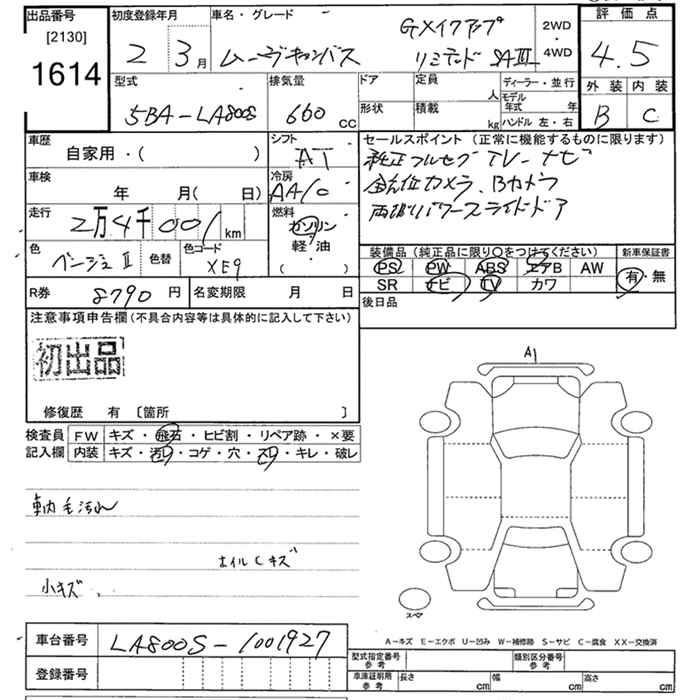 出品番号
[2130]
1614
初度登録年月
2 3月
車名・グレード
ムーヴキャンバス
Gメイクアップ
リミテッド SAⅢ
2WD
・
4WD
評価点
4.5
外装 内装
B C
型式
5BA-LA800S
排気量
660 cc
ドア
形状
定員
人
積載
kg
ディーラー・並行
モデル
年式 年
ハンドル 左・右
車歴
自家用・( )
シフト
AT
車検
年 月( 日)
冷房
AA/C
走行
2万4千001 km
燃料
ガソリン
軽・油
( )
色
ベージュⅡ
色替
色コード
XE9
セールスポイント (正常に機能するものに限ります)
純正フルセグTV-ナビ
全方位カメラ、Bカメラ
両側パワースライドドア
装備品 (純正品に限り○をつけてください)
PS PW ABS エアB AW
SR ナビ TV カワ
新車保証書
有・無
R券 8790 円
名変期限 月 日
後日品
注意事項申告欄 (不具合内容等は具体的に記入して下さい)
初出品
修復歴 有 〔箇所 〕
検査員
記入欄
FW キズ・飛石・ヒビ割・リペア跡・×要
内装 キズ・汚れ・コゲ・穴・スレ・キレ・破レ
車内毛汚れ
ホイルCキズ
小キズ
A1
スペア
車台番号 LA800S-1001927
登録番号
A-キズ E-エクボ U-凹み W-補修跡 S-サビ C-腐食 XX-交換済
型式指定番号
参考
類別区分番号
参考
車庫証明所
参考
長さ cm 幅 cm 高さ cm